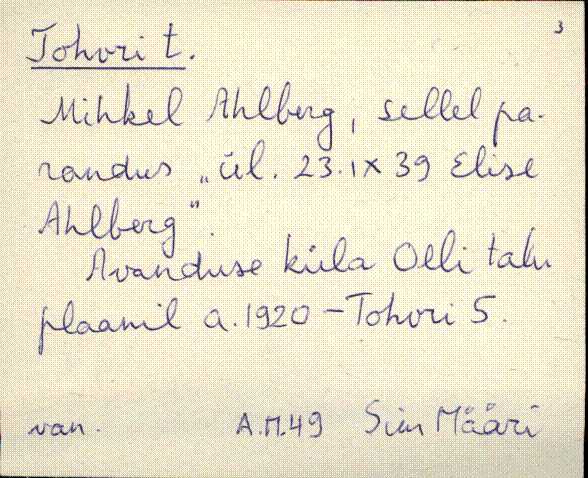 3
Tohvri t.
Mihkel Ahlberg, sellel pa-
randus „ül. 23.IX 39 Elise
Ahlberg".
Avanduse küla Olli talu
plaanil a. 1920 – Tohvri 5.
van. A.M.49 Sim Määri